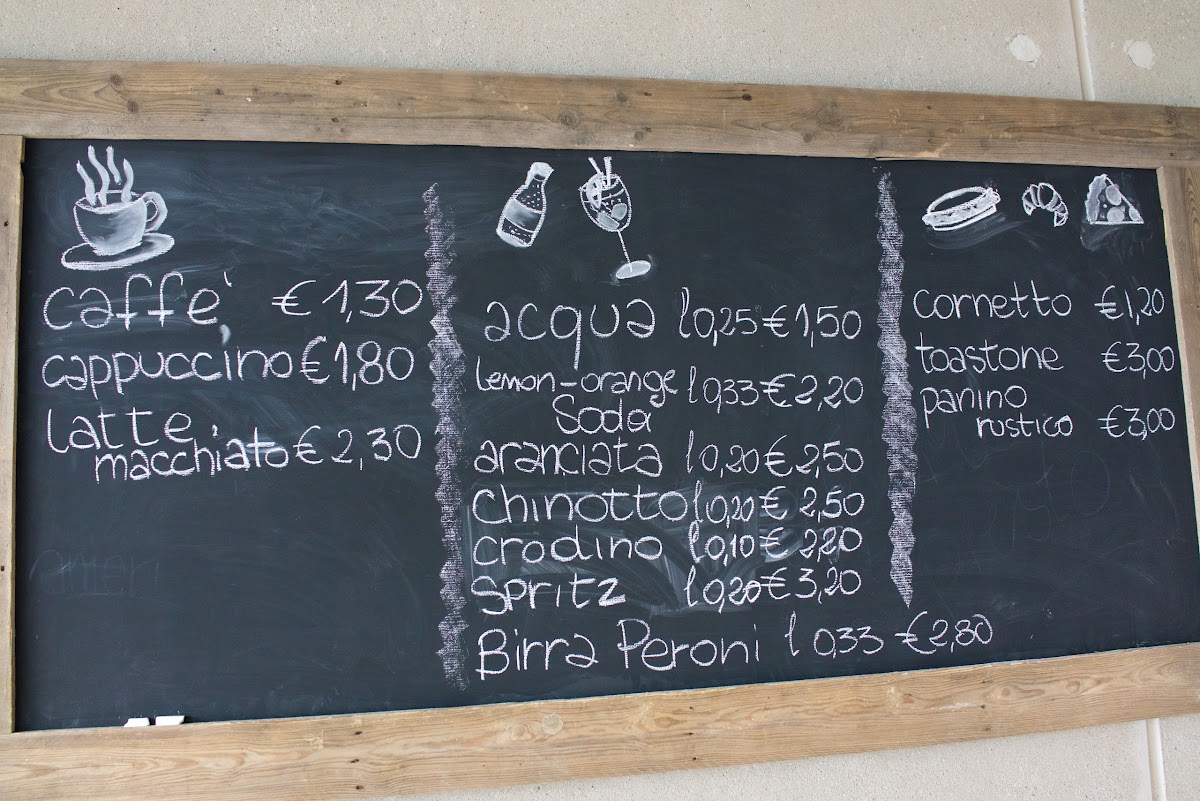 caffe' €1,30
cappuccino €1,80
latte
macchiato €2,30
acqua l0,25 €1,50
lemon-orange l0,33 €2,20
Soda
aranciata l0,20 €2,50
Chinotto l0,20 € 2,50
crodino l0,10 € 2,20
Spritz l0,20 €3,20
Birra Peroni l 0,33 €2,80
cornetto €1,20
toastone €3,00
panino
rustico €3,00